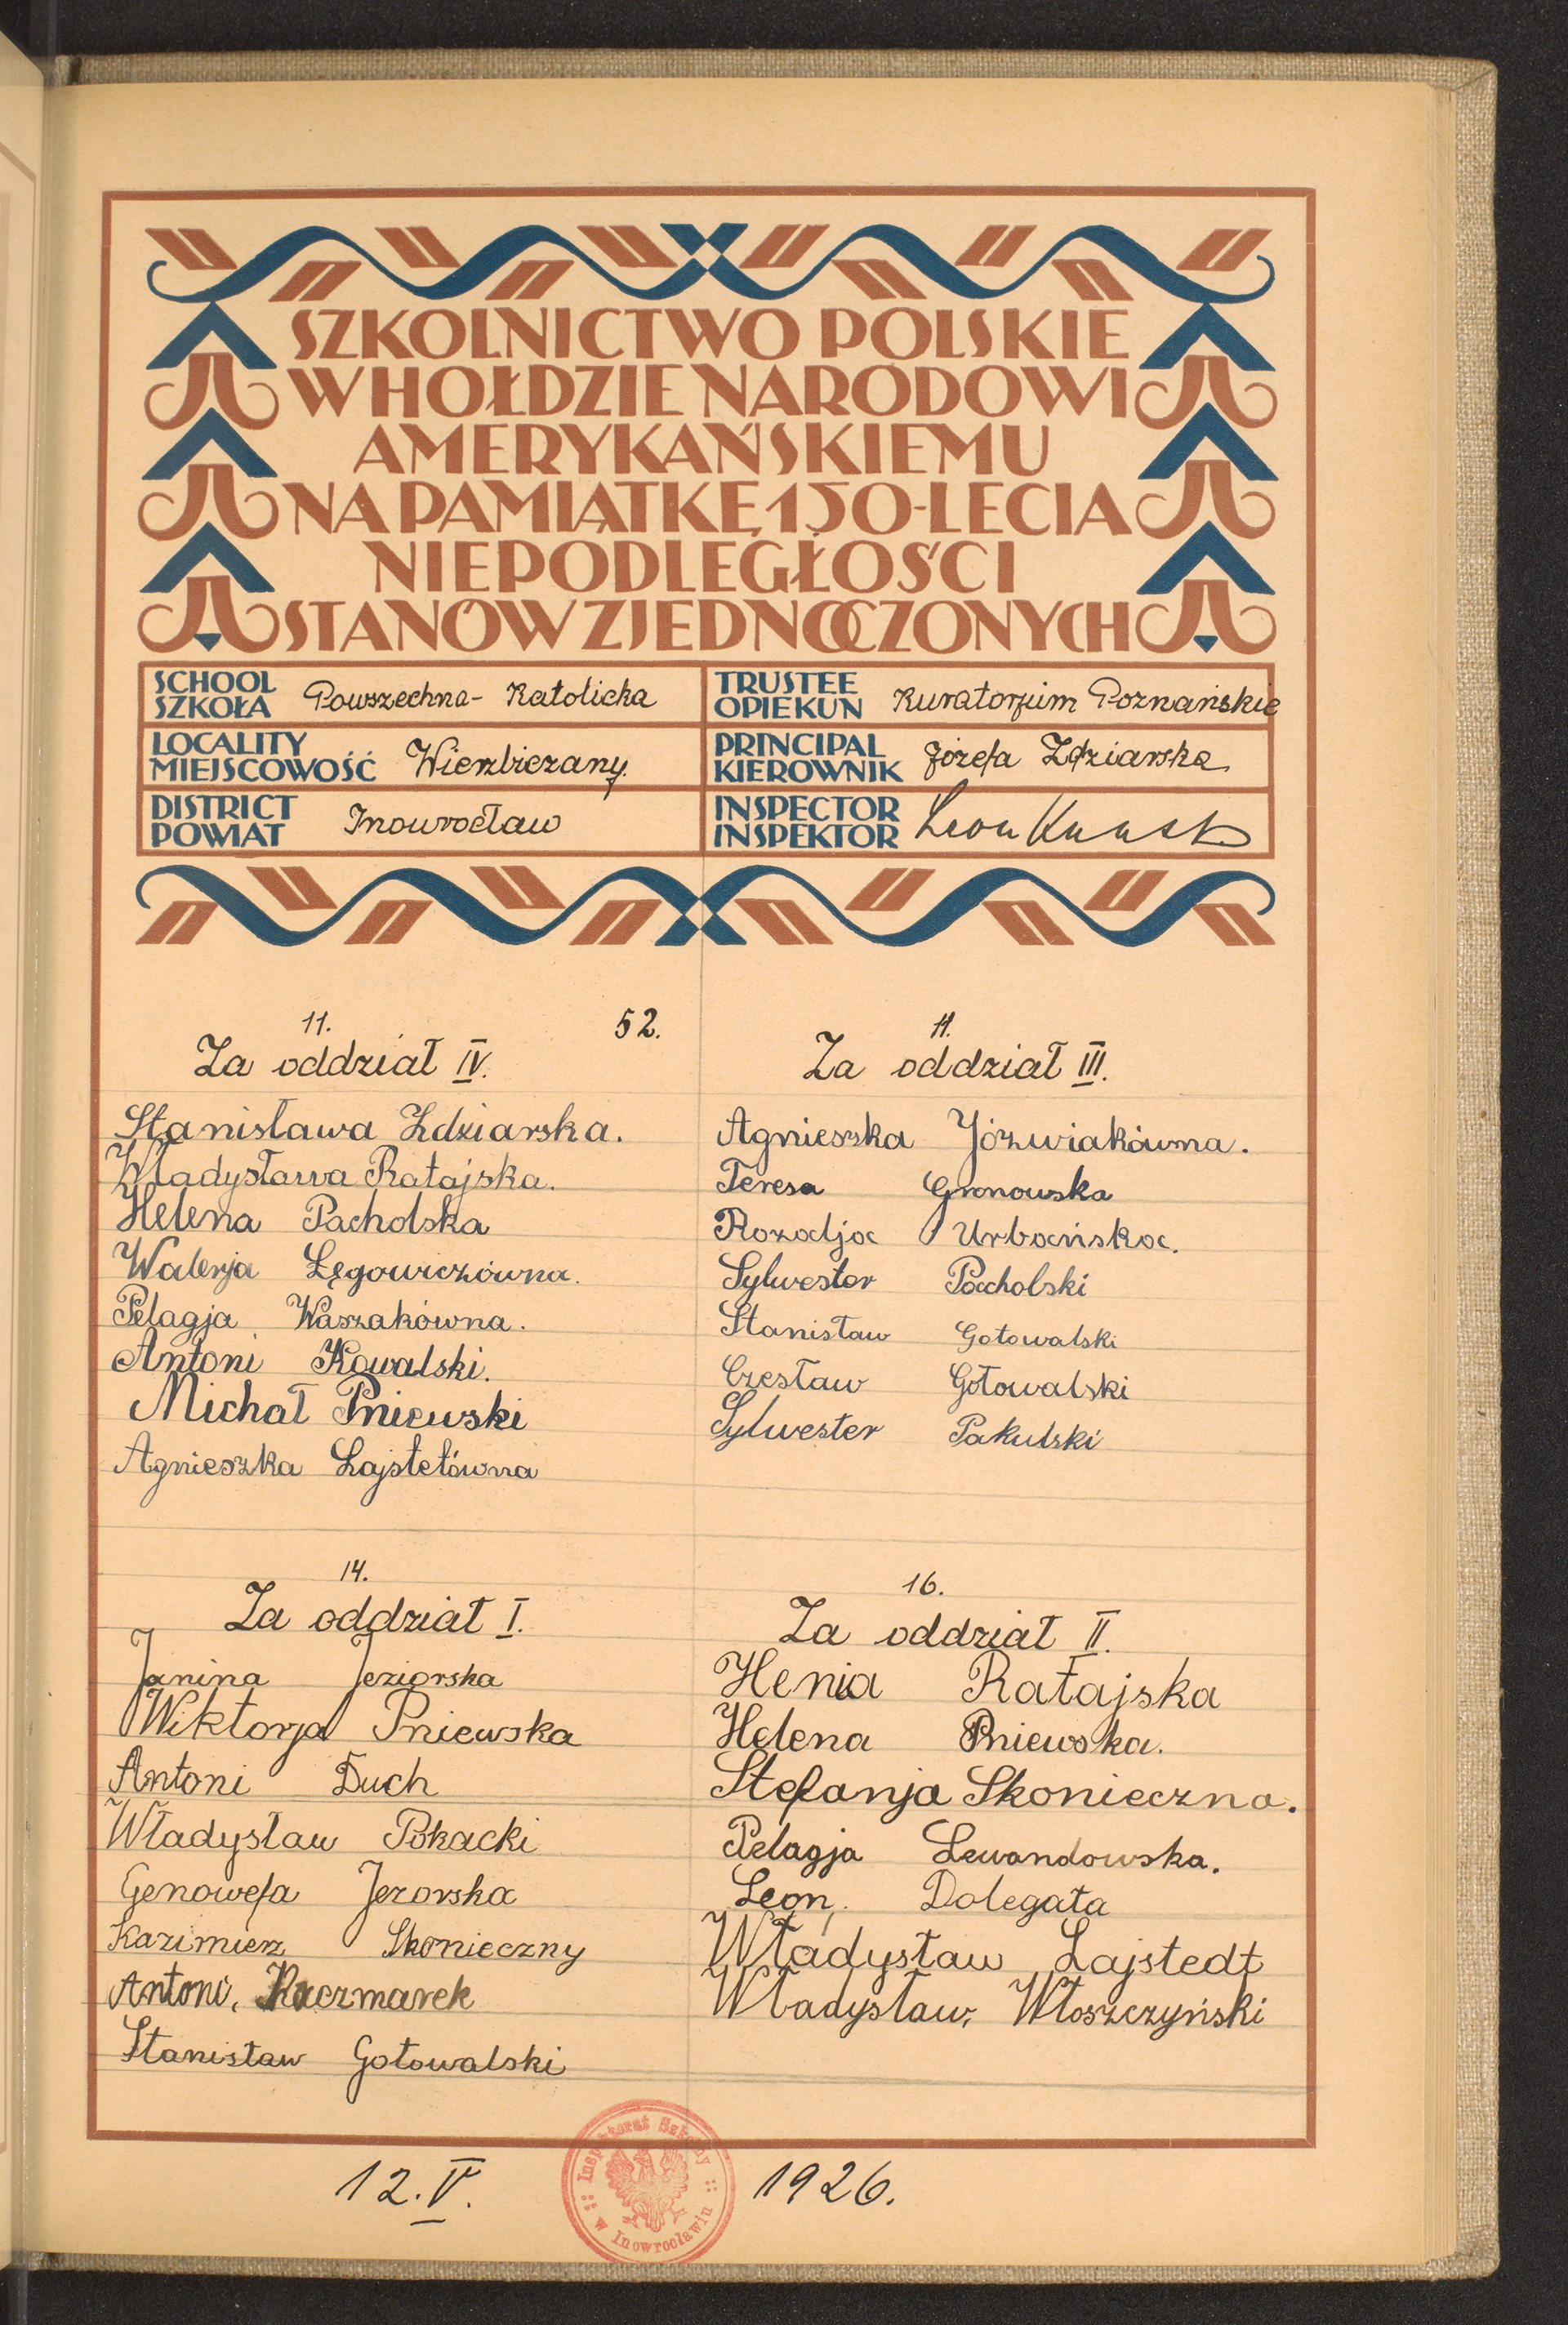 SZKOLNICTWO POLSKIE
W HOŁDZIE NARODOWI
AMERYKAŃSKIEMU
NA PAMIĄTKĘ 150-LECIA
NIEPODLEGŁOŚCI
STANÓW ZJEDNOCZONYCH
SCHOOL
SZKOŁA
Powszechna - Katolicka
TRUSTEE
OPIEKUN
Kuratorjum Poznańskie
LOCALITY
MIEJSCOWOŚĆ
Wierzbiczany.
PRINCIPAL
KIEROWNIK
Józefa Zdziarska
DISTRICT
POWIAT
Inowrocław
INSPECTOR
INSPEKTOR
Leon
11.
52.
Za oddział IV.
Stanisława Zdziarska.
Władysława Ratajska.
Helena Pacholska
Walerja Łęgowiczówna.
Pelagja Waszakówna.
Antoni Kowalski.
Michał Pniewski
Agnieszka Lajstetówna
11.
Za oddział III.
Agnieszka Józwiakówna.
Teresa Gronowska
Rozalja Urbańska.
Sylwester Pacholski
Stanisław Gotowalski
Czesław Gotowalski
Sylwester Pakulski
14.
Za oddział I.
Janina Jeziorska
Wiktorja Pniewska
Antoni Duch
Władysław Pokacki
Genowefa Jezorska
Kazimierz Skonieczny
Antoni, Kaczmarek
Stanisław Gotowalski
16.
Za oddział II.
Henia Ratajska
Helena Pniewska.
Stefanja Skonieczna.
Pelagja Lewandowska.
Leon, Dolegata
Władysław Lajstedt
Władysław, Włoszczyński
12. V. 1926.
Inspektorat Szkolny
w Inowrocławiu